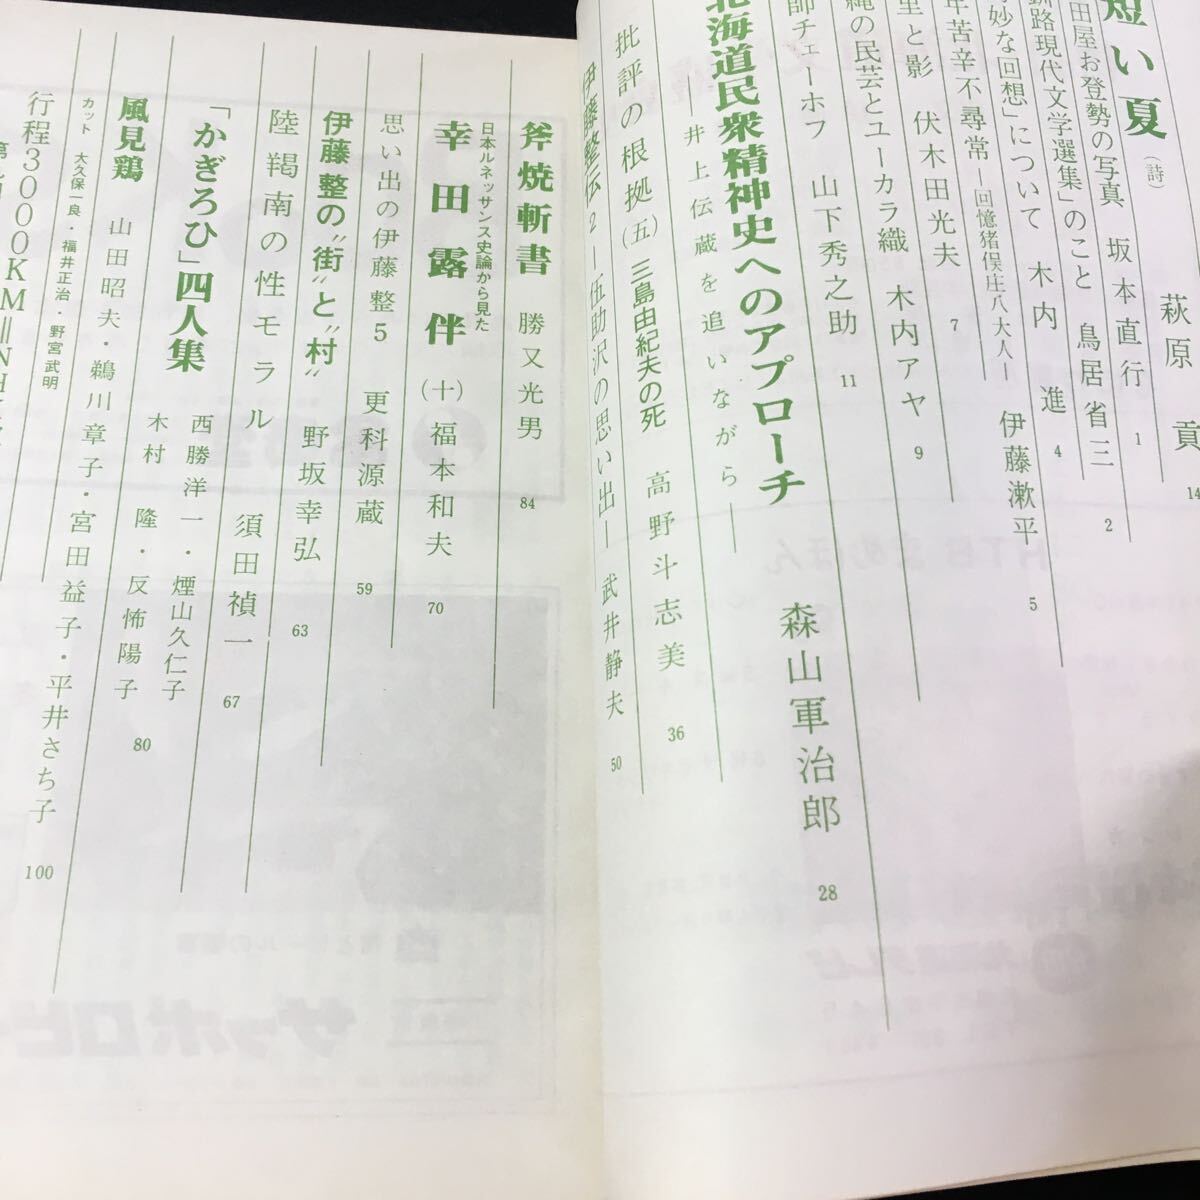 短い夏（詩） 萩原 貢 14
田屋お登勢の写真 坂本直行 1
釧路現代文学選集」のこと 鳥居省三 2
妙な回想」について 木内 進 4
年苦辛不尋常 回憶猪俣庄八大人― 伊藤漱平 5
里と影 伏木田光夫 7
縄の民芸とユーカラ織 木内アヤ 9
師チェーホフ 山下秀之助 11
北海道民衆精神史へのアプローチ
―井上伝蔵を追いながら―
森山軍治郎 28
批評の根拠（五） 三島由紀夫の死 高野斗志美 36
伊藤整伝2―伍助沢の思い出― 武井静夫 50
斧焼斬書 勝又光男 84
日本ルネッサンス史論から見た
幸田露伴（十） 福本和夫 70
思い出の伊藤整5 更科源蔵 59
伊藤整の"街"と"村" 野坂幸弘 63
陸羯南の性モラル 須田禎一 67
「かぎろひ」四人集 西勝洋一・煙山久仁子
木村 隆・反怖陽子 80
風見鶏 山田昭夫・鵜川章子・宮田益子・平井さち子 100
カット 大久保一良・福井正治・野宮武明
行程3000KM